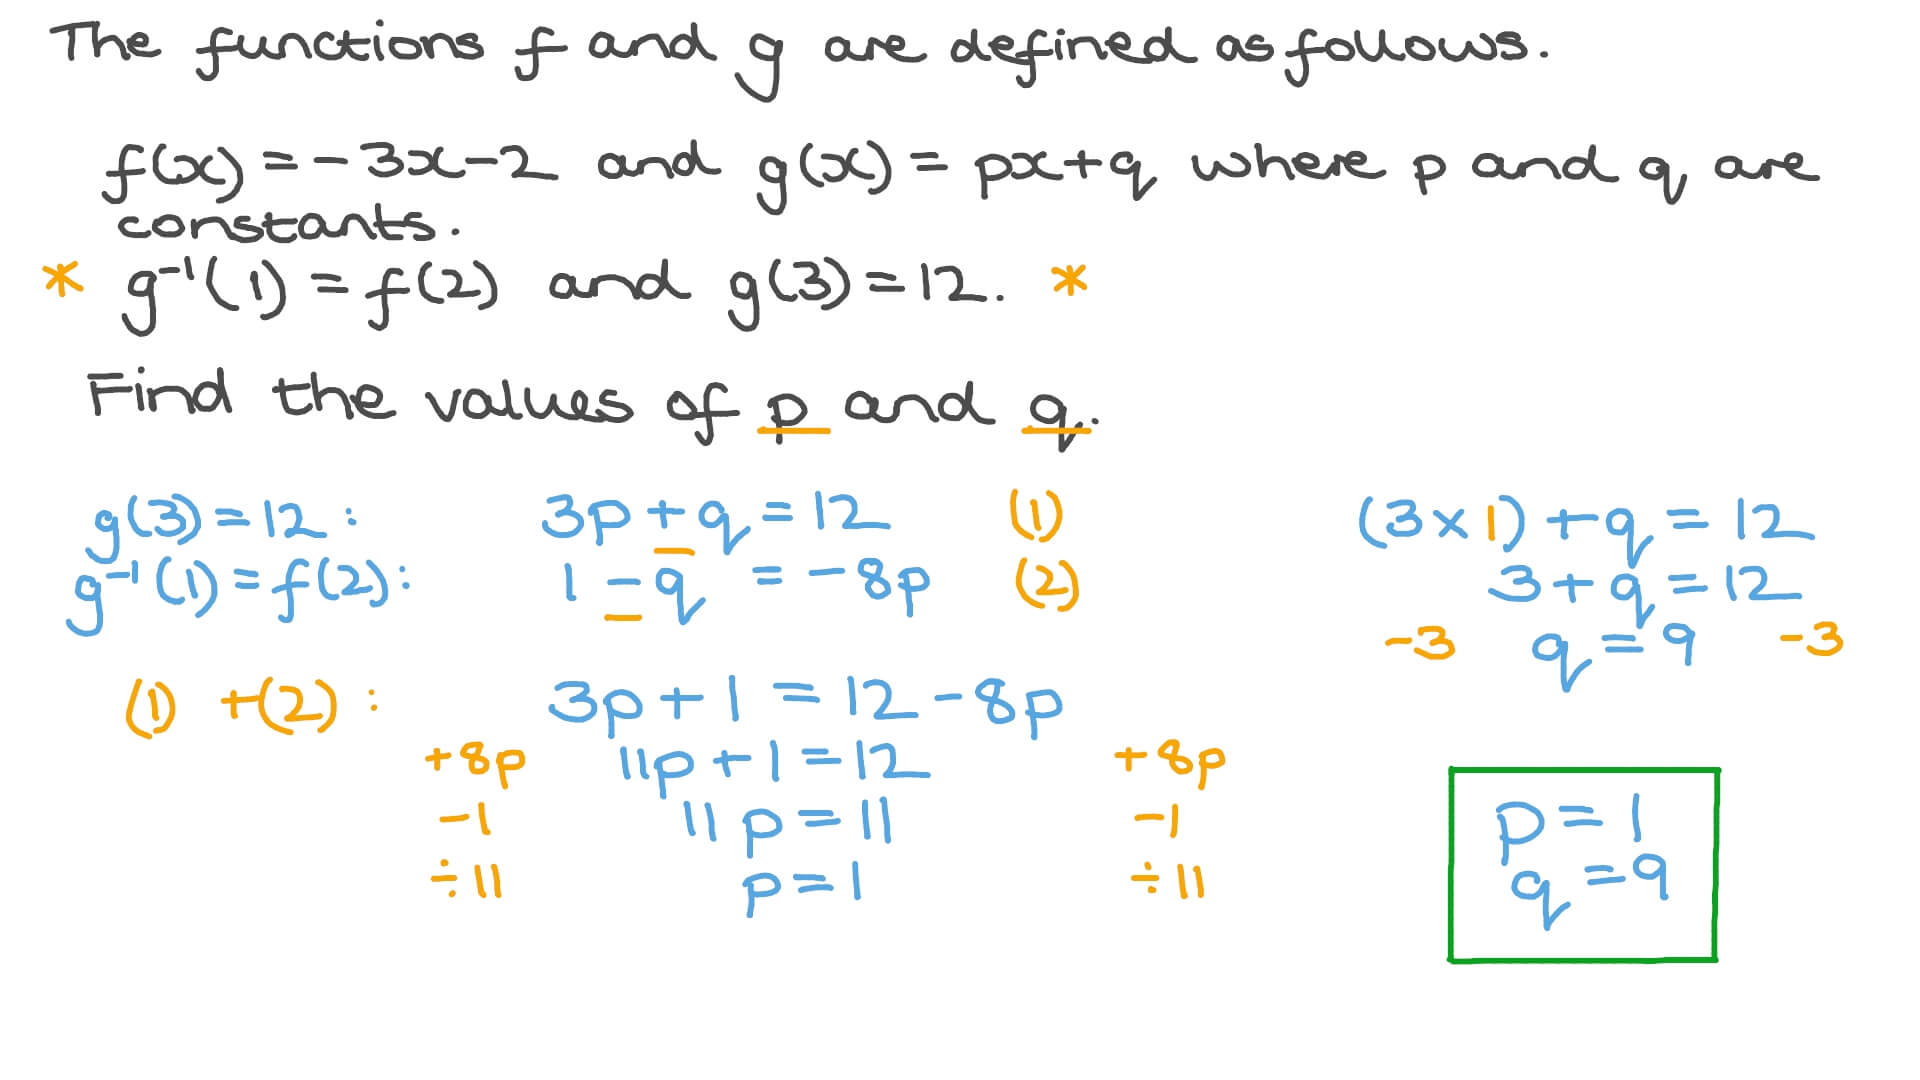 The functions f and g are defined as follows.
f(x) = -3x-2 and g(x) = px+q where p and q are
constants.
* g⁻¹(1) = f(2) and g(3) = 12. *
Find the values of p and q.
g(3) = 12: 3p + q = 12 (1)
g⁻¹(1) = f(2): 1 - q = -8p (2)
(1) + (2): 3p + 1 = 12 - 8p
+8p 11p + 1 = 12 +8p
-1 11p = 11 -1
÷11 p = 1 ÷11
(3 × 1) + q = 12
3 + q = 12
-3 q = 9 -3
p = 1
q = 9